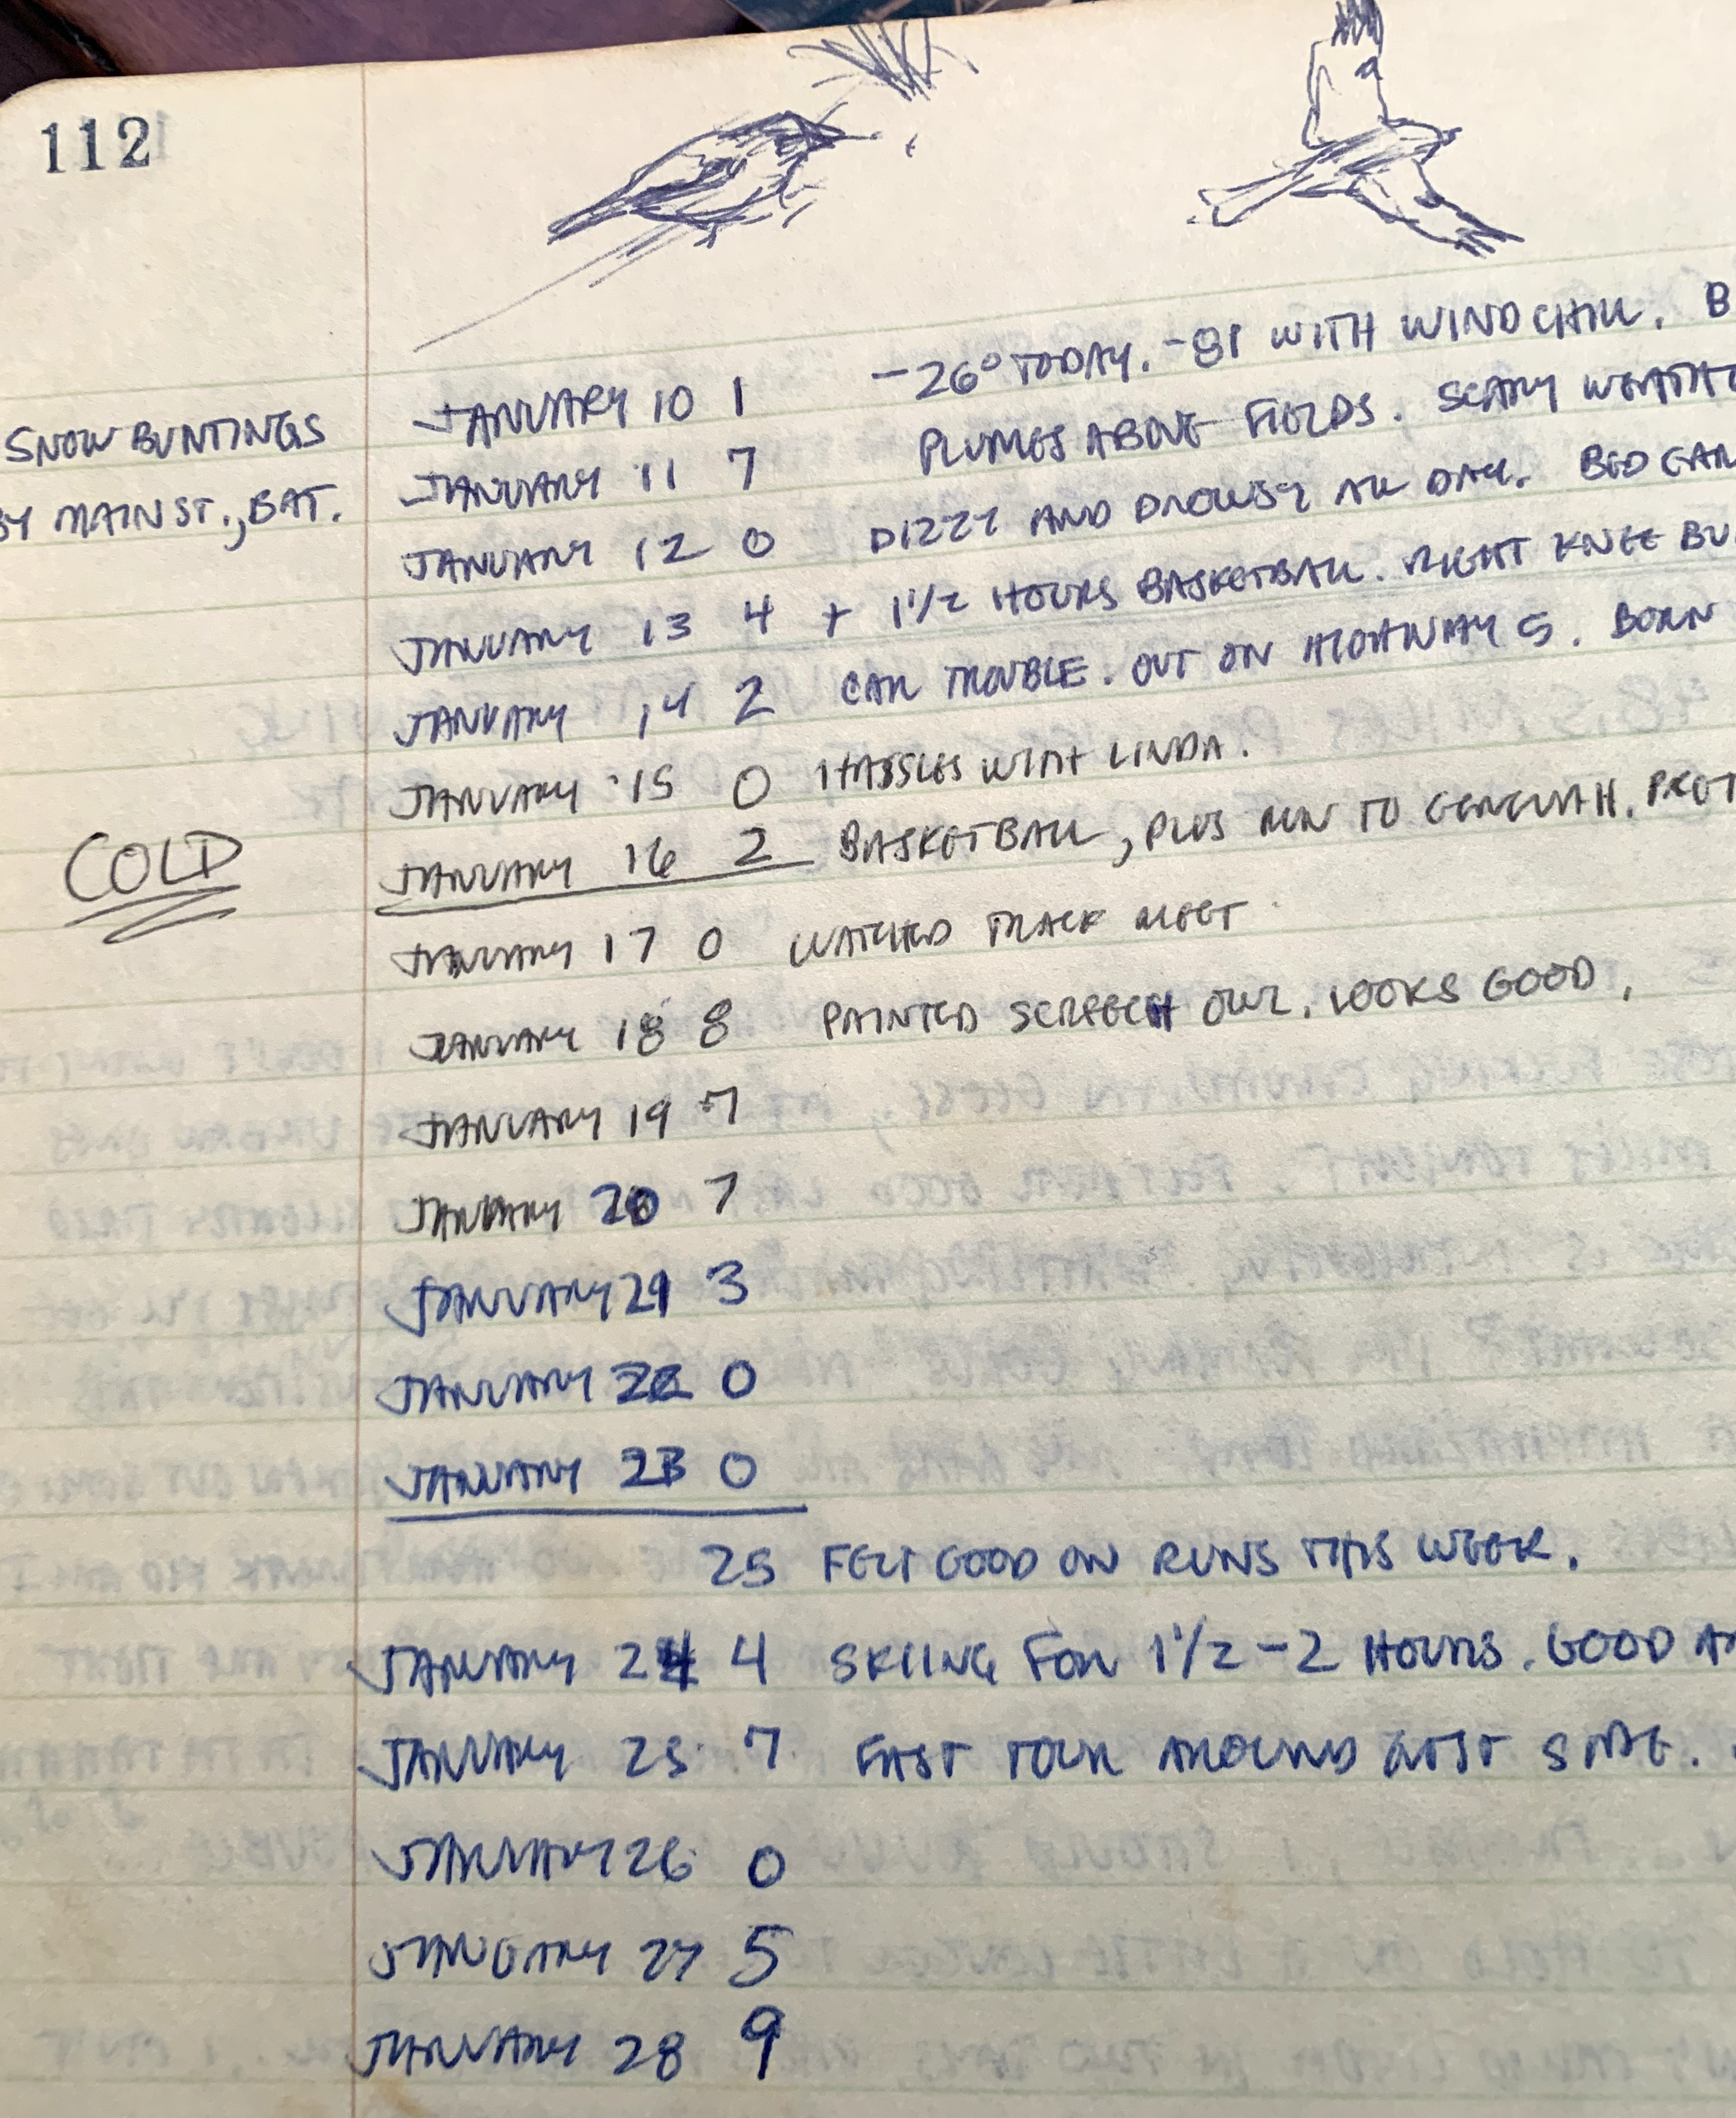 112
SNOW BUNTINGS
BY MAIN ST., BAT.
COLD
JANUARY 10 1 -26° TODAY. -81 WITH WINDCHILL. B
JANUARY 11 7 PLUMES ABOVE FIELDS. SCARY WEATHE
JANUARY 12 0 DIZZY AND DROWSY ALL DAY. BED EAR
JANUARY 13 4 + 1 1/2 HOURS BASKETBALL. RIGHT KNEE BU
JANUARY 14 2 CAR TROUBLE. OUT ON HIGHWAY 5. BORN
JANUARY 15 0 HASSLES WITH LINDA.
JANUARY 16 2 BASKETBALL, PLUS RUN TO
JANUARY 17 0 WATCHED TRACK MEET
JANUARY 18 8 PAINTED SCREECH OWL. LOOKS GOOD.
JANUARY 19 7
JANUARY 20 7
JANUARY 21 3
JANUARY 22 0
JANUARY 23 0
25 FELT GOOD ON RUNS THIS WEEK.
JANUARY 24 4 SKIING FOR 1 1/2 - 2 HOURS. GOOD
JANUARY 25 7 FAST TOUR AROUND WEST SIDE.
JANUARY 26 0
JANUARY 27 5
JANUARY 28 9